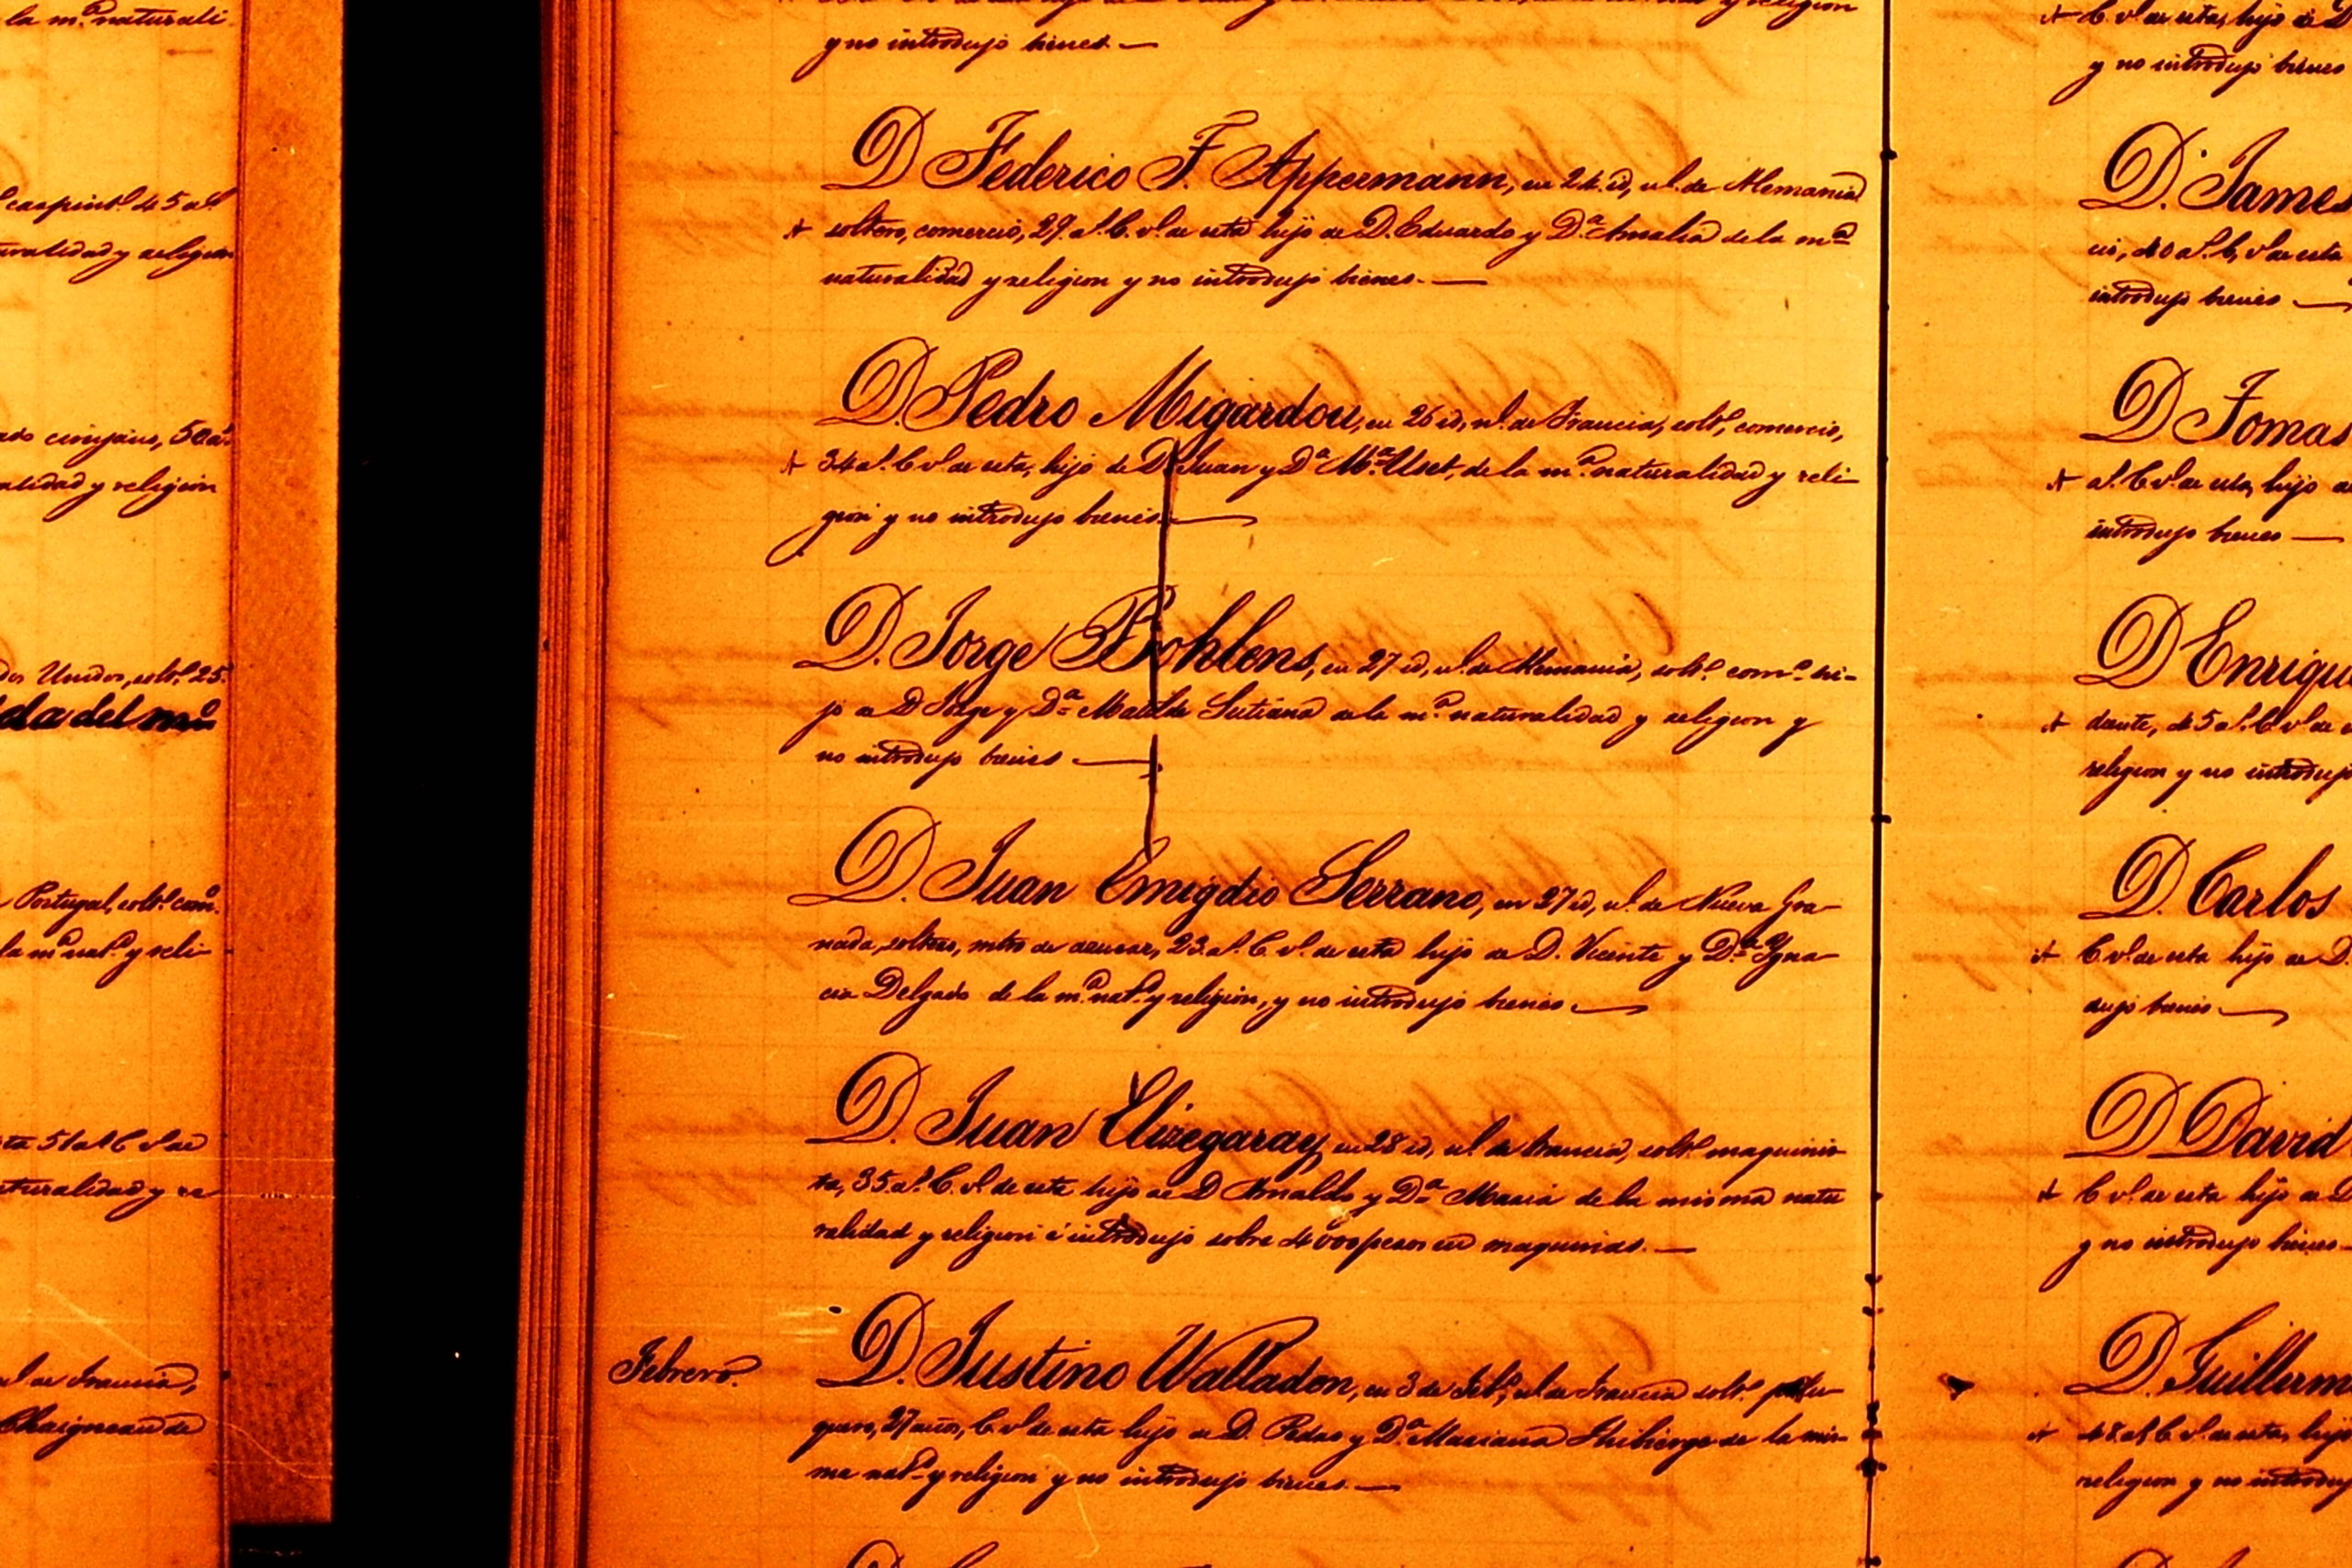 la m.ª naturali
carpint.º 45 a.s
naturalidad y religion
cirujano, 50 a.s
naturalidad y religion
Unidos, solt.º 25.
da del m.º
Portugal, solt.º com.º
la m.ª nat.d y reli-
51 a.s C. v.º de
naturalidad y re
n.l de Francia,
Chaigneau de
y religion
y no introdujo bienes. —
D Federico F. Appermann, en 24. id, n.l de Alemania
soltero, comercio, 29. a.s C. v.º de esta hijo de D. Eduardo y D.ª Amalia de la m.ª
naturalidad y religion y no introdujo bienes. —
D. Pedro Migardou, en 26 id, n.l de Francia, solt.º, comercio,
34 a.s C v.º de esta, hijo de D. Juan y D.ª M.ª Uset, de la m.ª naturalidad y reli-
gion y no introdujo bienes. —
D. Jorge Bohlens, en 27 id, n.l de Alemania, solt.º com.º hi-
jo de D Jorge y D.ª Matilde de la m.ª naturalidad y religion y
no introdujo bienes —
D. Juan Emigdio Serrano, en 27 id, n.l de Nueva Gra-
nada, soltero, mtro de azucar, 23. a.s C. v.º de esta hijo de D. Vicente y D.ª Ygna-
cia Delgado de la m.ª nat.d y religion, y no introdujo bienes —
D. Juan Elizegaray, en 28 id, n.l de Francia, solt.º maquinis-
ta, 35 a.s C. v.º de esta hijo de D Arnaldo y D.ª Maria de la misma natu
ralidad y religion é introdujo sobre 4000 pesos en maquinias. —
Febrero.
D. Justino Walladon, en 3 de Feb.º, n.l de Francia solt.º pelu-
quero, 27 años, C v.º de esta hijo de D. Pedro y D.ª Mariana de la mis-
ma nat.d y religion y no introdujo bienes. —
C. v.º de esta, hijo de D
y no introdujo bienes
D. James
cio, 40 a.s C, v.º de esta
introdujo bienes —
D Tomas
a.s C v.º de esta, hijo de
introdujo bienes —
D Enriqu
45 a.s C v.º de
religion y no introdujo
D. Carlos
C v.º de esta hijo de D.
dujo bienes —
D David
C v.º de esta hijo de D
y no introdujo bienes —
D. Guillerm
48 a.s C v.º de esta, hijo
religion y no introduj